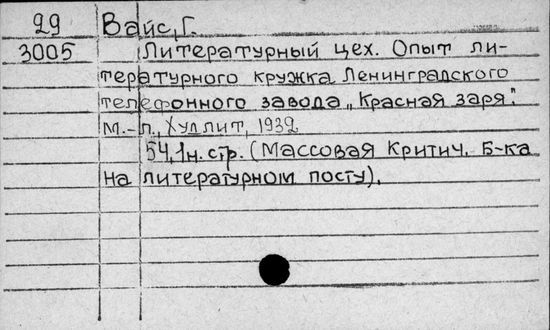 29 Вайс, Г.
3005 Литературный цех. Опыт ли-
тературного кружка Ленинградского
телефонного завода „Красная заря".
М.-Л., Худлит, 1932
54, 1н. стр. (Массовая Критич. Б-ка
на литературном посту).